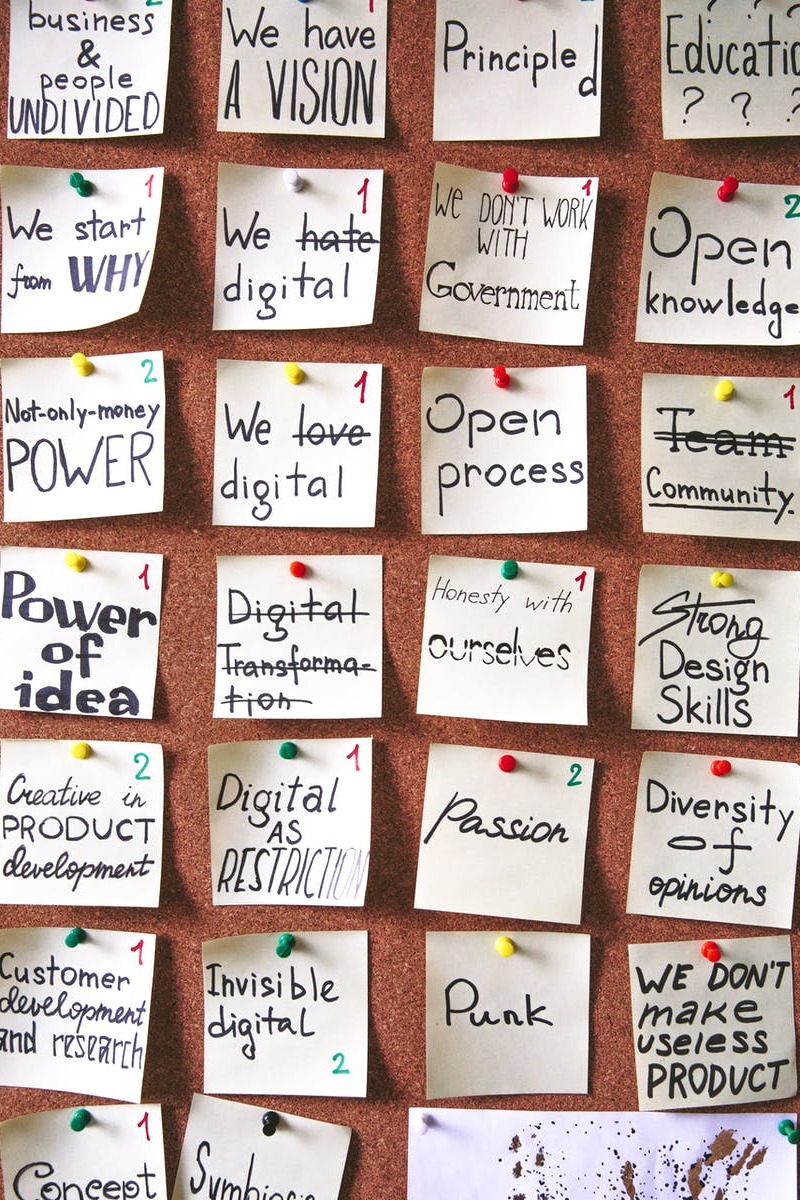 2
business
&
people
UNDIVIDED
1
We have
A VISION
Principle
d
? ?
? ? ?
1
We start
from WHY
1
We hate
digital
1
WE DON'T WORK
WITH
Government
2
Open
knowledge
2
Not-only-money
POWER
1
We love
digital
Open
process
1
Team
Community.
1
Power
of
idea
Digital
Transforma-
tion
1
Honesty with
ourselves
Strong
Design
Skills
2
Creative in
PRODUCT
development
1
Digital
AS
RESTRICTION
2
Passion
Diversity
of
opinions
1
Customer
development
and research
Invisible
digital
2
Punk
WE DON'T
make
useless
PRODUCT
1
Concept